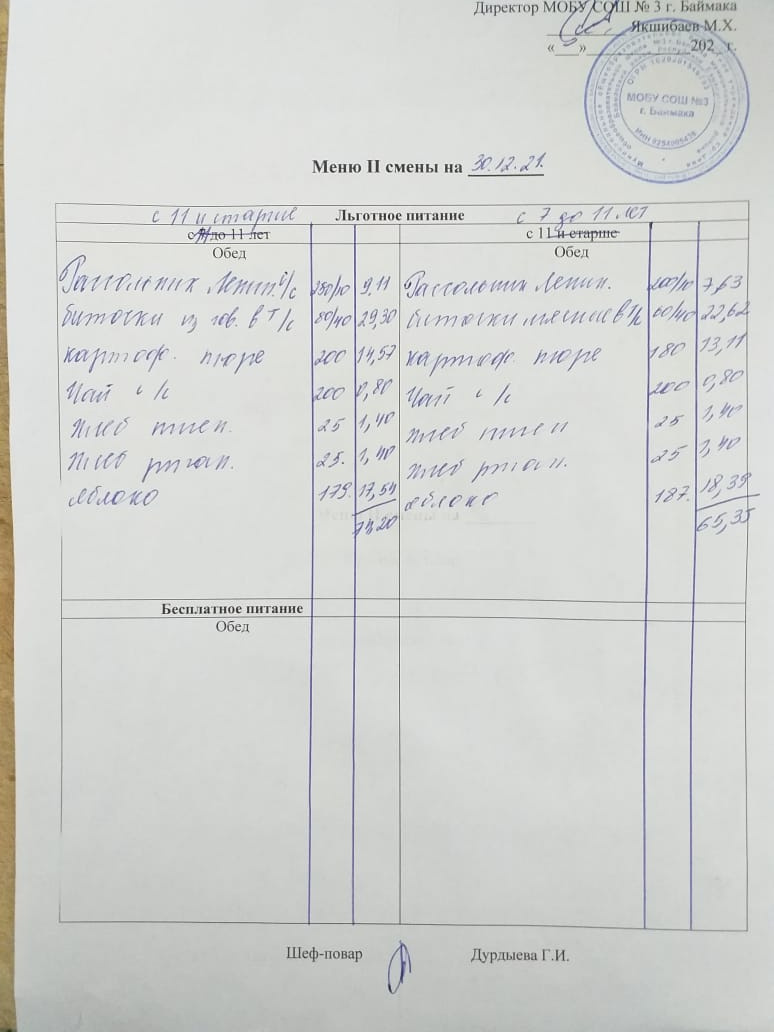 Директор МОБУ СОШ № 3 г. Баймака
Якшибаев М.Х.
«___»____________202__г.
МОБУ СОШ №3
г. Баймака
ИНН 0254005438
Меню II смены на 30.12.21.
с 11 и старше Льготное питание с 7 до 11 лет
с 7 до 11 лет с 11 и старше
Обед Обед
Рассольник Ленин. с/с 250/10 9,11 Рассольник Ленин. 200/10 7,63
биточки из гов. в т/с 80/40 29,30 биточки мясные в т/с 60/40 22,62
картоф. пюре 200 14,57 картоф. пюре 180 13,11
Чай с/с 200 0,80 Чай с/с 200 0,80
Хлеб пшен. 25 1,40 Хлеб пшен 25 1,40
Хлеб ржан. 25. 1,40 Хлеб ржан. 25 1,40
яблоко 179. 17,54 яблоко 187. 18,39
74,20 65,35
Бесплатное питание
Обед
Шеф-повар Дурдыева Г.И.